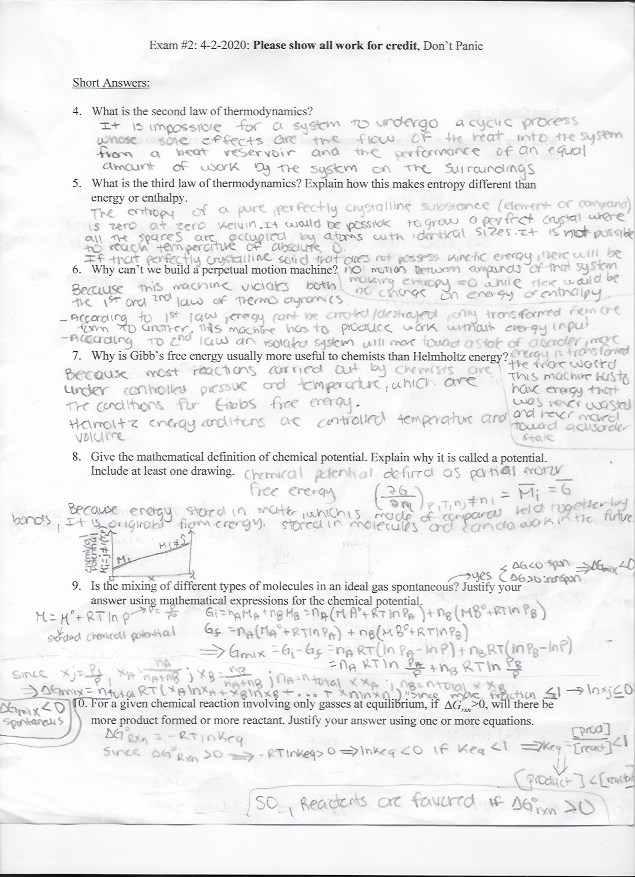 Exam #2: 4-2-2020: Please show all work for credit, Don't Panic
Short Answers:
4. What is the second law of thermodynamics?
It is impossible for a system to undergo a cyclic process
whose sole effects are the flow of the heat into the system
from a heat reservoir and the performance of an equal
amount of work by the system on the surroundings
5. What is the third law of thermodynamics? Explain how this makes entropy different than
energy or enthalpy.
The entropy of a pure, perfectly crystalline substance (element or compound)
is zero at zero Kelvin. It would be possible to grow a perfect crystal where
all the spaces are occupied by atoms with identical sizes. It is not possible
to reach temperature of absolute 0.
If that perfectly crystalline solid that does not possess kinetic energy, there will be
no motion between compounds of that system
making entropy =0 while there would be
no change on energy or enthalpy
6. Why can't we build a perpetual motion machine?
Because this machine violates both
the 1st and 2nd law of thermo dynamics
- According to 1st law, energy cant be created/destroyed, only transformed from one
form to another, this machine has to produce work without energy input.
- According to 2nd law an isolated system will move toward a state of disorder, more
energy is transformed
the more wasted
This machine has to
have energy that
was never wasted
and never moved
toward a disorder
state
7. Why is Gibb's free energy usually more useful to chemists than Helmholtz energy?
Because most reactions carried out by chemists are
under controlled pressure and temperature, which are
the conditions for Gibbs free energy.
Helmoltz energy conditions are controlled temperature and
volume
8. Give the mathematical definition of chemical potential. Explain why it is called a potential.
Include at least one drawing.
Chemical potential defined as partial molar
free energy
(∂G/∂ni) P,T,nj≠ni = M̄i = Ḡ
Because energy stored in matter which is made of compounds held together by
bonds, It is originated from energy. stored in molecules and can do work in the future
Mi
9. Is the mixing of different types of molecules in an ideal gas spontaneous? Justify your
answer using mathematical expressions for the chemical potential.
→yes { ΔG<0 span → ΔGmix<0
ΔG>0 nonspan
M = M° + RT ln P
Gi = nAMA + nBMB = nA(MA° + RT ln PA) + nB(MB° + RT ln PB)
chemical potential
Gf = nA(MA° + RT ln PA) + nB(MB° + RT ln PB)
⇒ Gmix = Gi - Gf = nA RT (ln PA - ln P) + nB RT (ln PB - ln P)
= nA RT ln PA/P + nB RT ln PB/P
since xj = Pj/P, xA = nA/nA+nB ; xB = nB/nA+nB , nA = ntotal x xA ; nB = ntotal x xB
⇒ ΔGmix = ntotal RT (xA ln xA + xB ln xB + ... + xn ln xn) "since mole fraction ≤1 → ln xj ≤0
ΔGmix<0
spontaneous
10. For a given chemical reaction involving only gasses at equilibrium, if ΔG°rxn>0, will there be
more product formed or more reactant. Justify your answer using one or more equations.
ΔG°rxn = -RT ln Keq
Since ΔG°rxn >0 ⇒ -RT ln Keq >0 ⇒ ln Keq <0 if Keq <1 ⇒ Keq = [prod]/[react] <1
⇓
[product] < [reactant
SO, Reactants are favored if ΔG°rxn >0